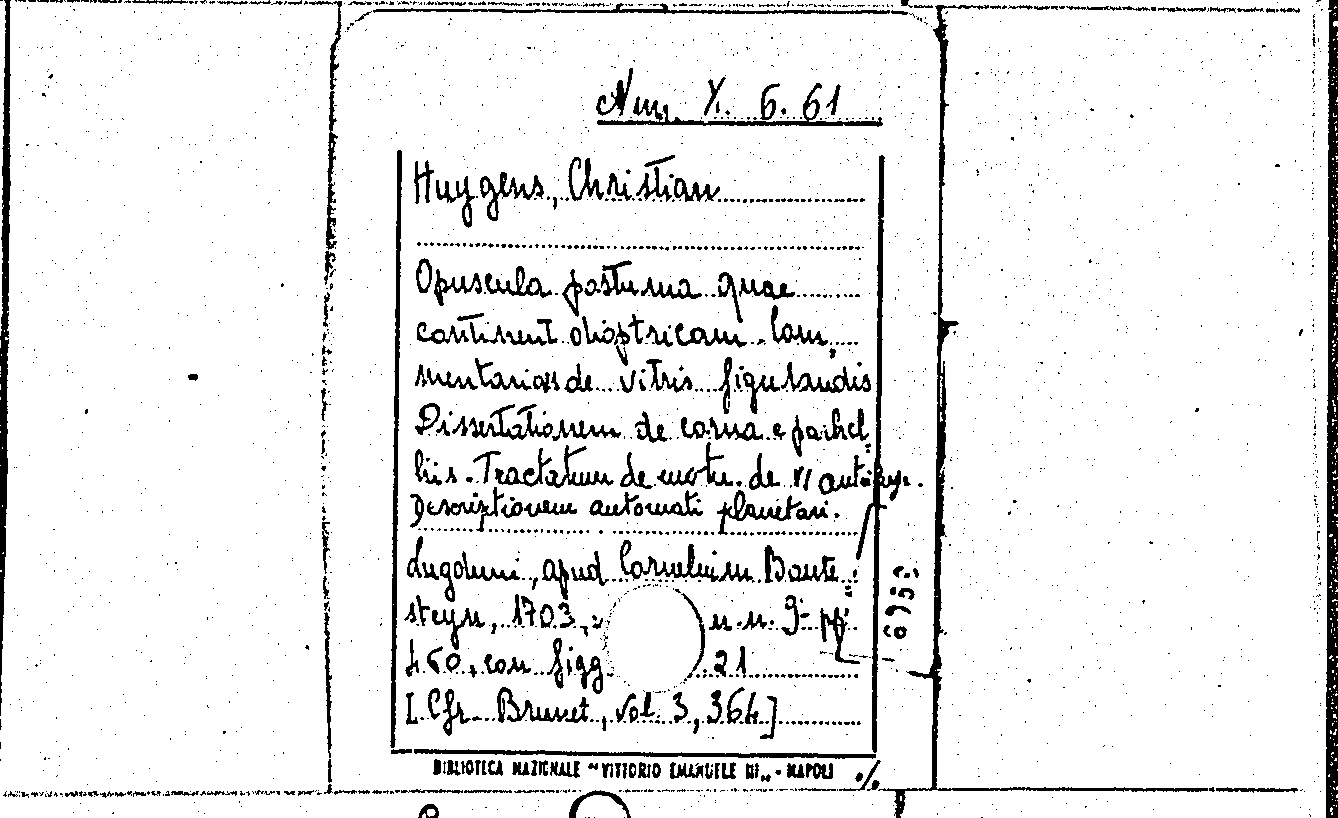 X. 6. 61
Huygens, Christian
Opuscula postuma quae
continent dioptricam. Com,
mentarios de vitris figurandis
Dissertationem de corona e parhel=
liis. Tractatum de motu. de vi
Descriptionem automati planetari.
Lugduni, apud Cornelium Boute=
steyn, 1703, n.n. 9- pp
460, con figg 21
[Cfr. Brunet, vol. 3, 364]
BIBLIOTECA NAZIONALE "VITTORIO EMANUELE III" - NAPOLI ./.